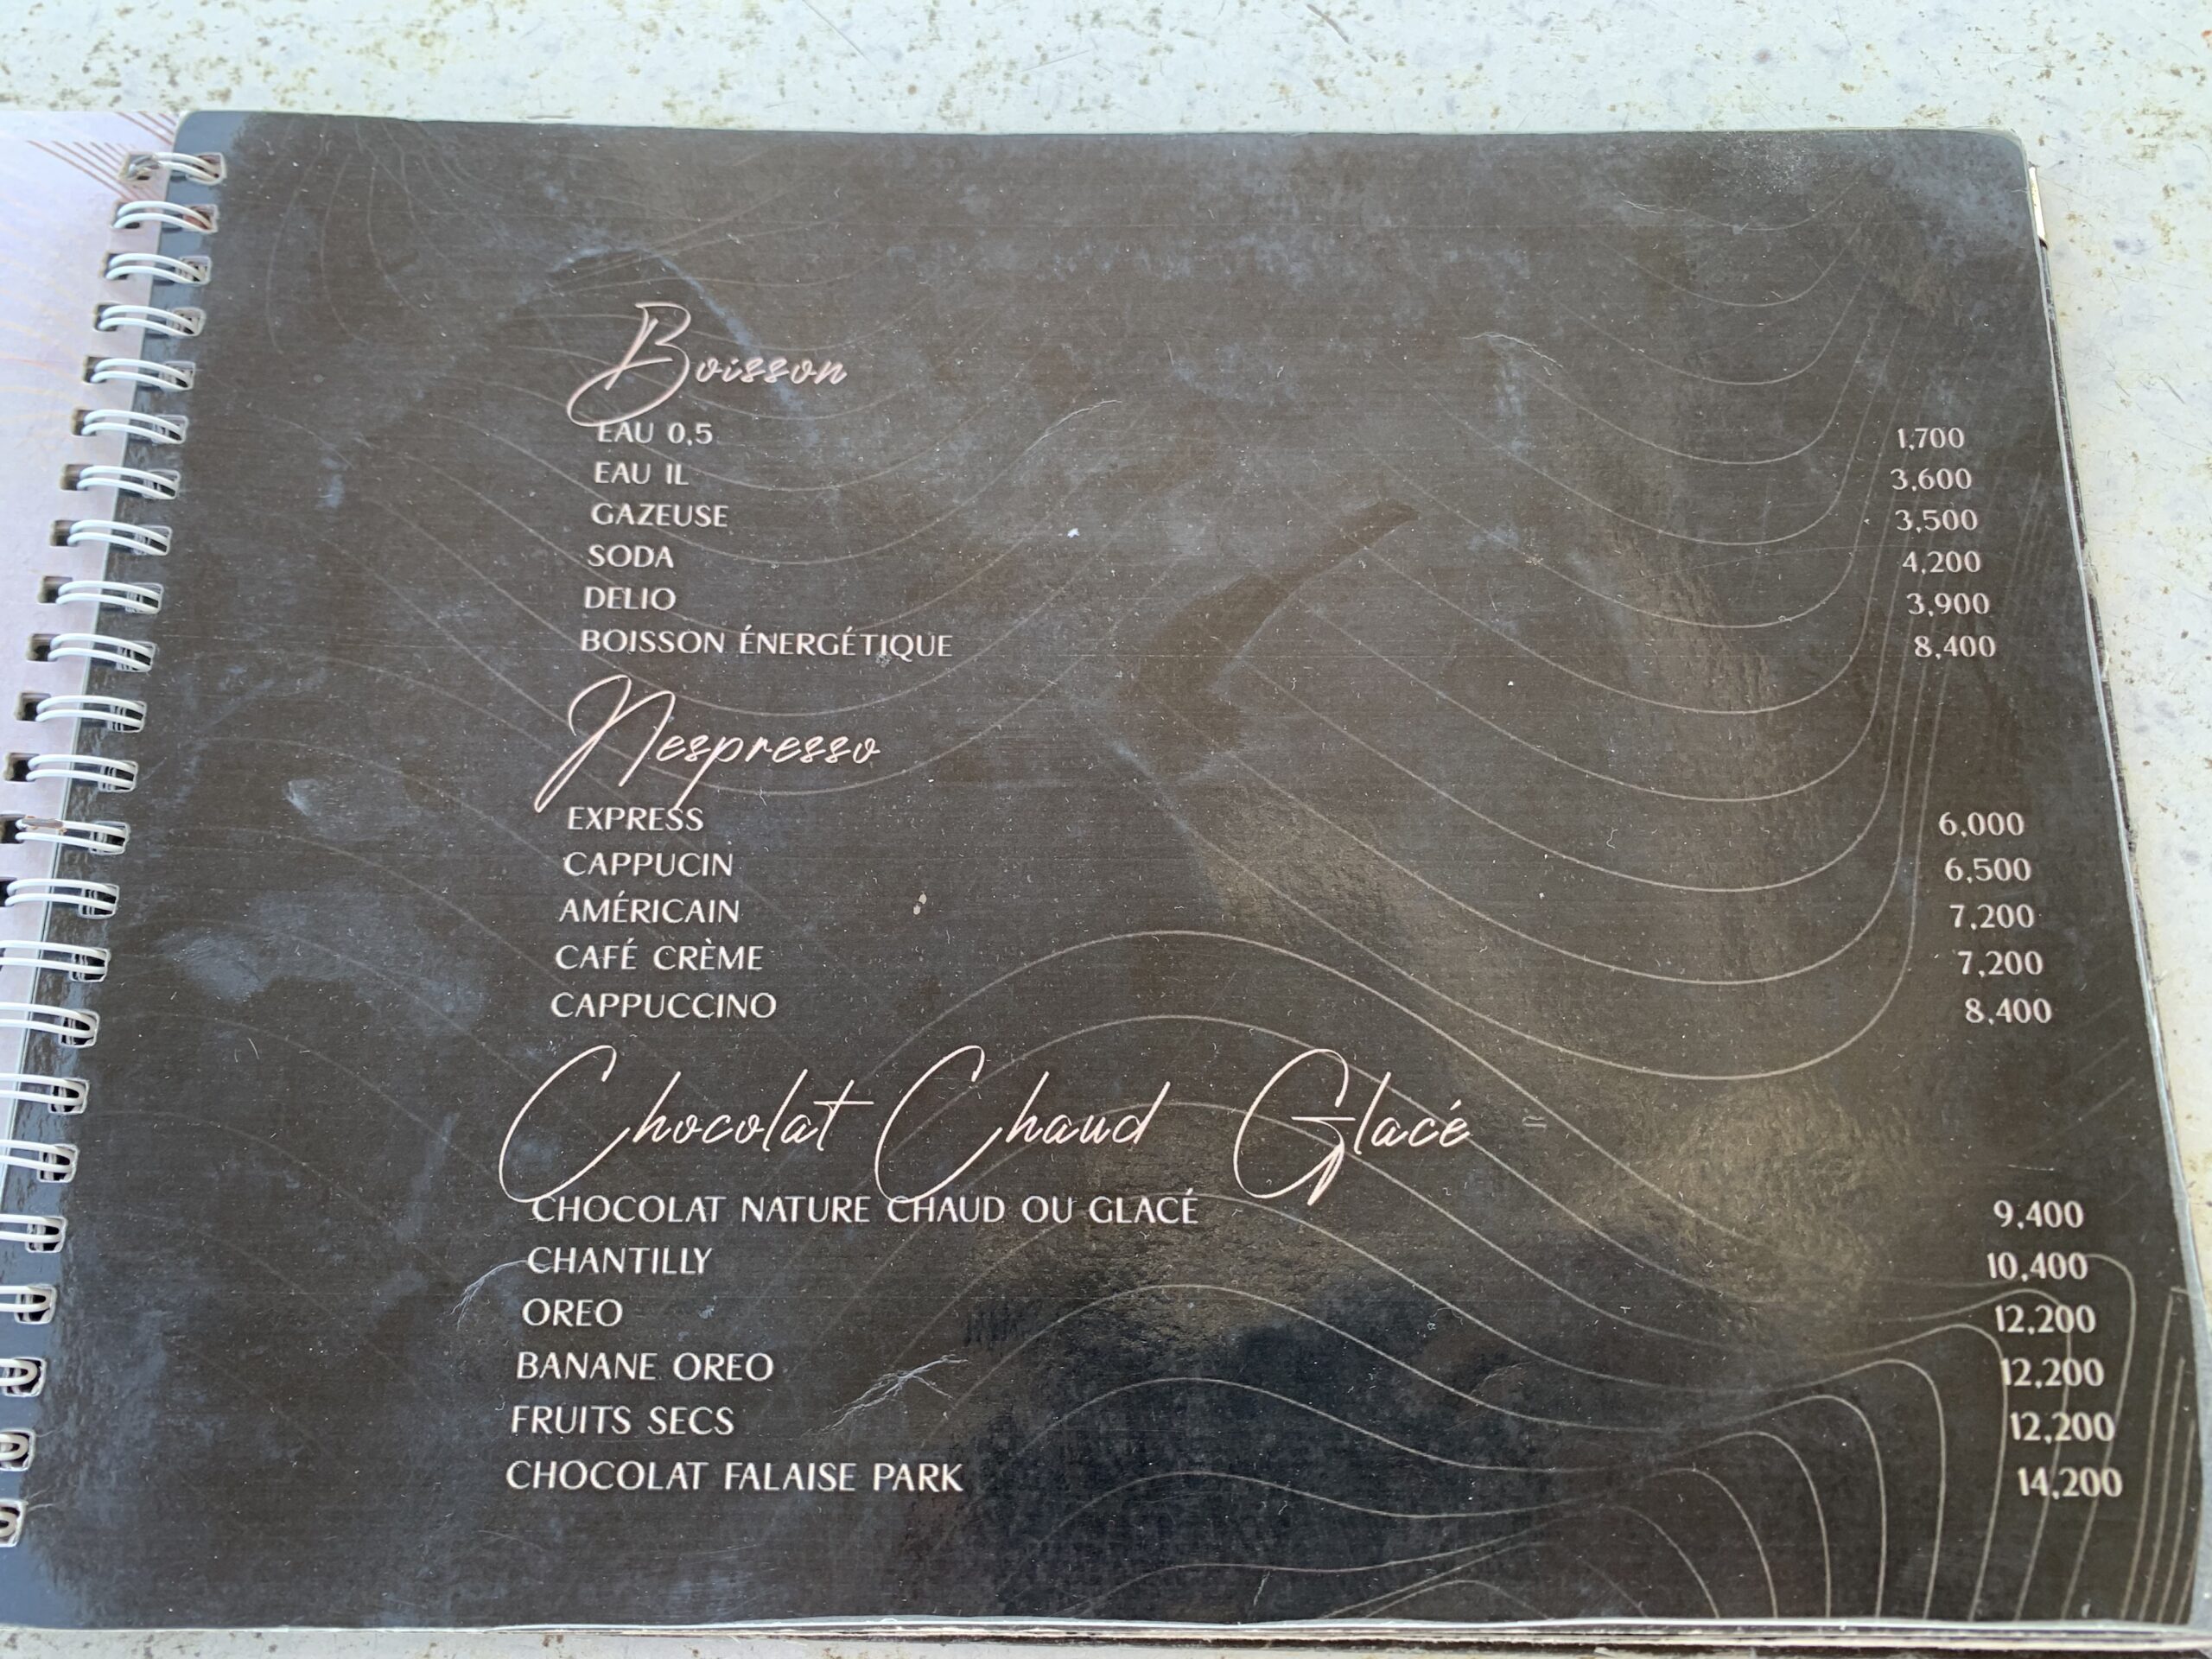 Boisson
EAU 0,5 1,700
EAU 1L 3,600
GAZEUSE 3,500
SODA 4,200
DELIO 3,900
BOISSON ÉNERGÉTIQUE 8,400
Nespresso
EXPRESS 6,000
CAPPUCIN 6,500
AMÉRICAIN 7,200
CAFÉ CRÈME 7,200
CAPPUCCINO 8,400
Chocolat Chaud Glacé
CHOCOLAT NATURE CHAUD OU GLACÉ 9,400
CHANTILLY 10,400
OREO 12,200
BANANE OREO 12,200
FRUITS SECS 12,200
CHOCOLAT FALAISE PARK 14,200